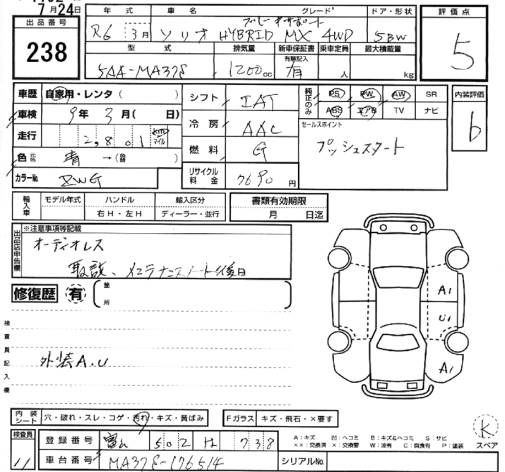 7月24日
出品番号
238
年式 車名 グレード ドア・形状
R6 3月 ソリオ HYBRID MX 4WD 5BW
型式 排気量 新車保証書 有無記入 乗車定員 最大積載量
5AA-MA37S 1200cc 有 人 kg
評価点
5
内装評価
b
車歴 自家用・レンタ( )
車検 9年 3月( 日)
走行 2,801
色 青 →(替 )
カラーNo. ZWG
シフト IAT
冷房 AAC
燃料 G
リサイクル料金 7690円
純正のみ PS PW AW SR
ABS エアB TV ナビ
セールスポイント
プッシュスタート
輸入車 モデル年式 ハンドル 輸入区分
右H・左H ディーラー・並行
書類有効期限
月 日迄
出品店申告欄
※注意事項等記載
オーディオレス
取説、メンテナンスノート後日
修復歴 有 箇所
検査員記入欄
外装A.U
A1
U1
A1
内装シート 穴・破れ・スレ・コゲ・汚れ・キズ・黄ばみ
Fガラス キズ・飛石・×要す
検査員
11
登録番号 富山 502 は 738
車台番号 MA37S-176514
シリアルNo.
A:キズ U:ヘコミ B:キズ&ヘコミ S:サビ
××:交換済 ×:交換要 W:波有 C:腐食有 P:塗装
K
スペア